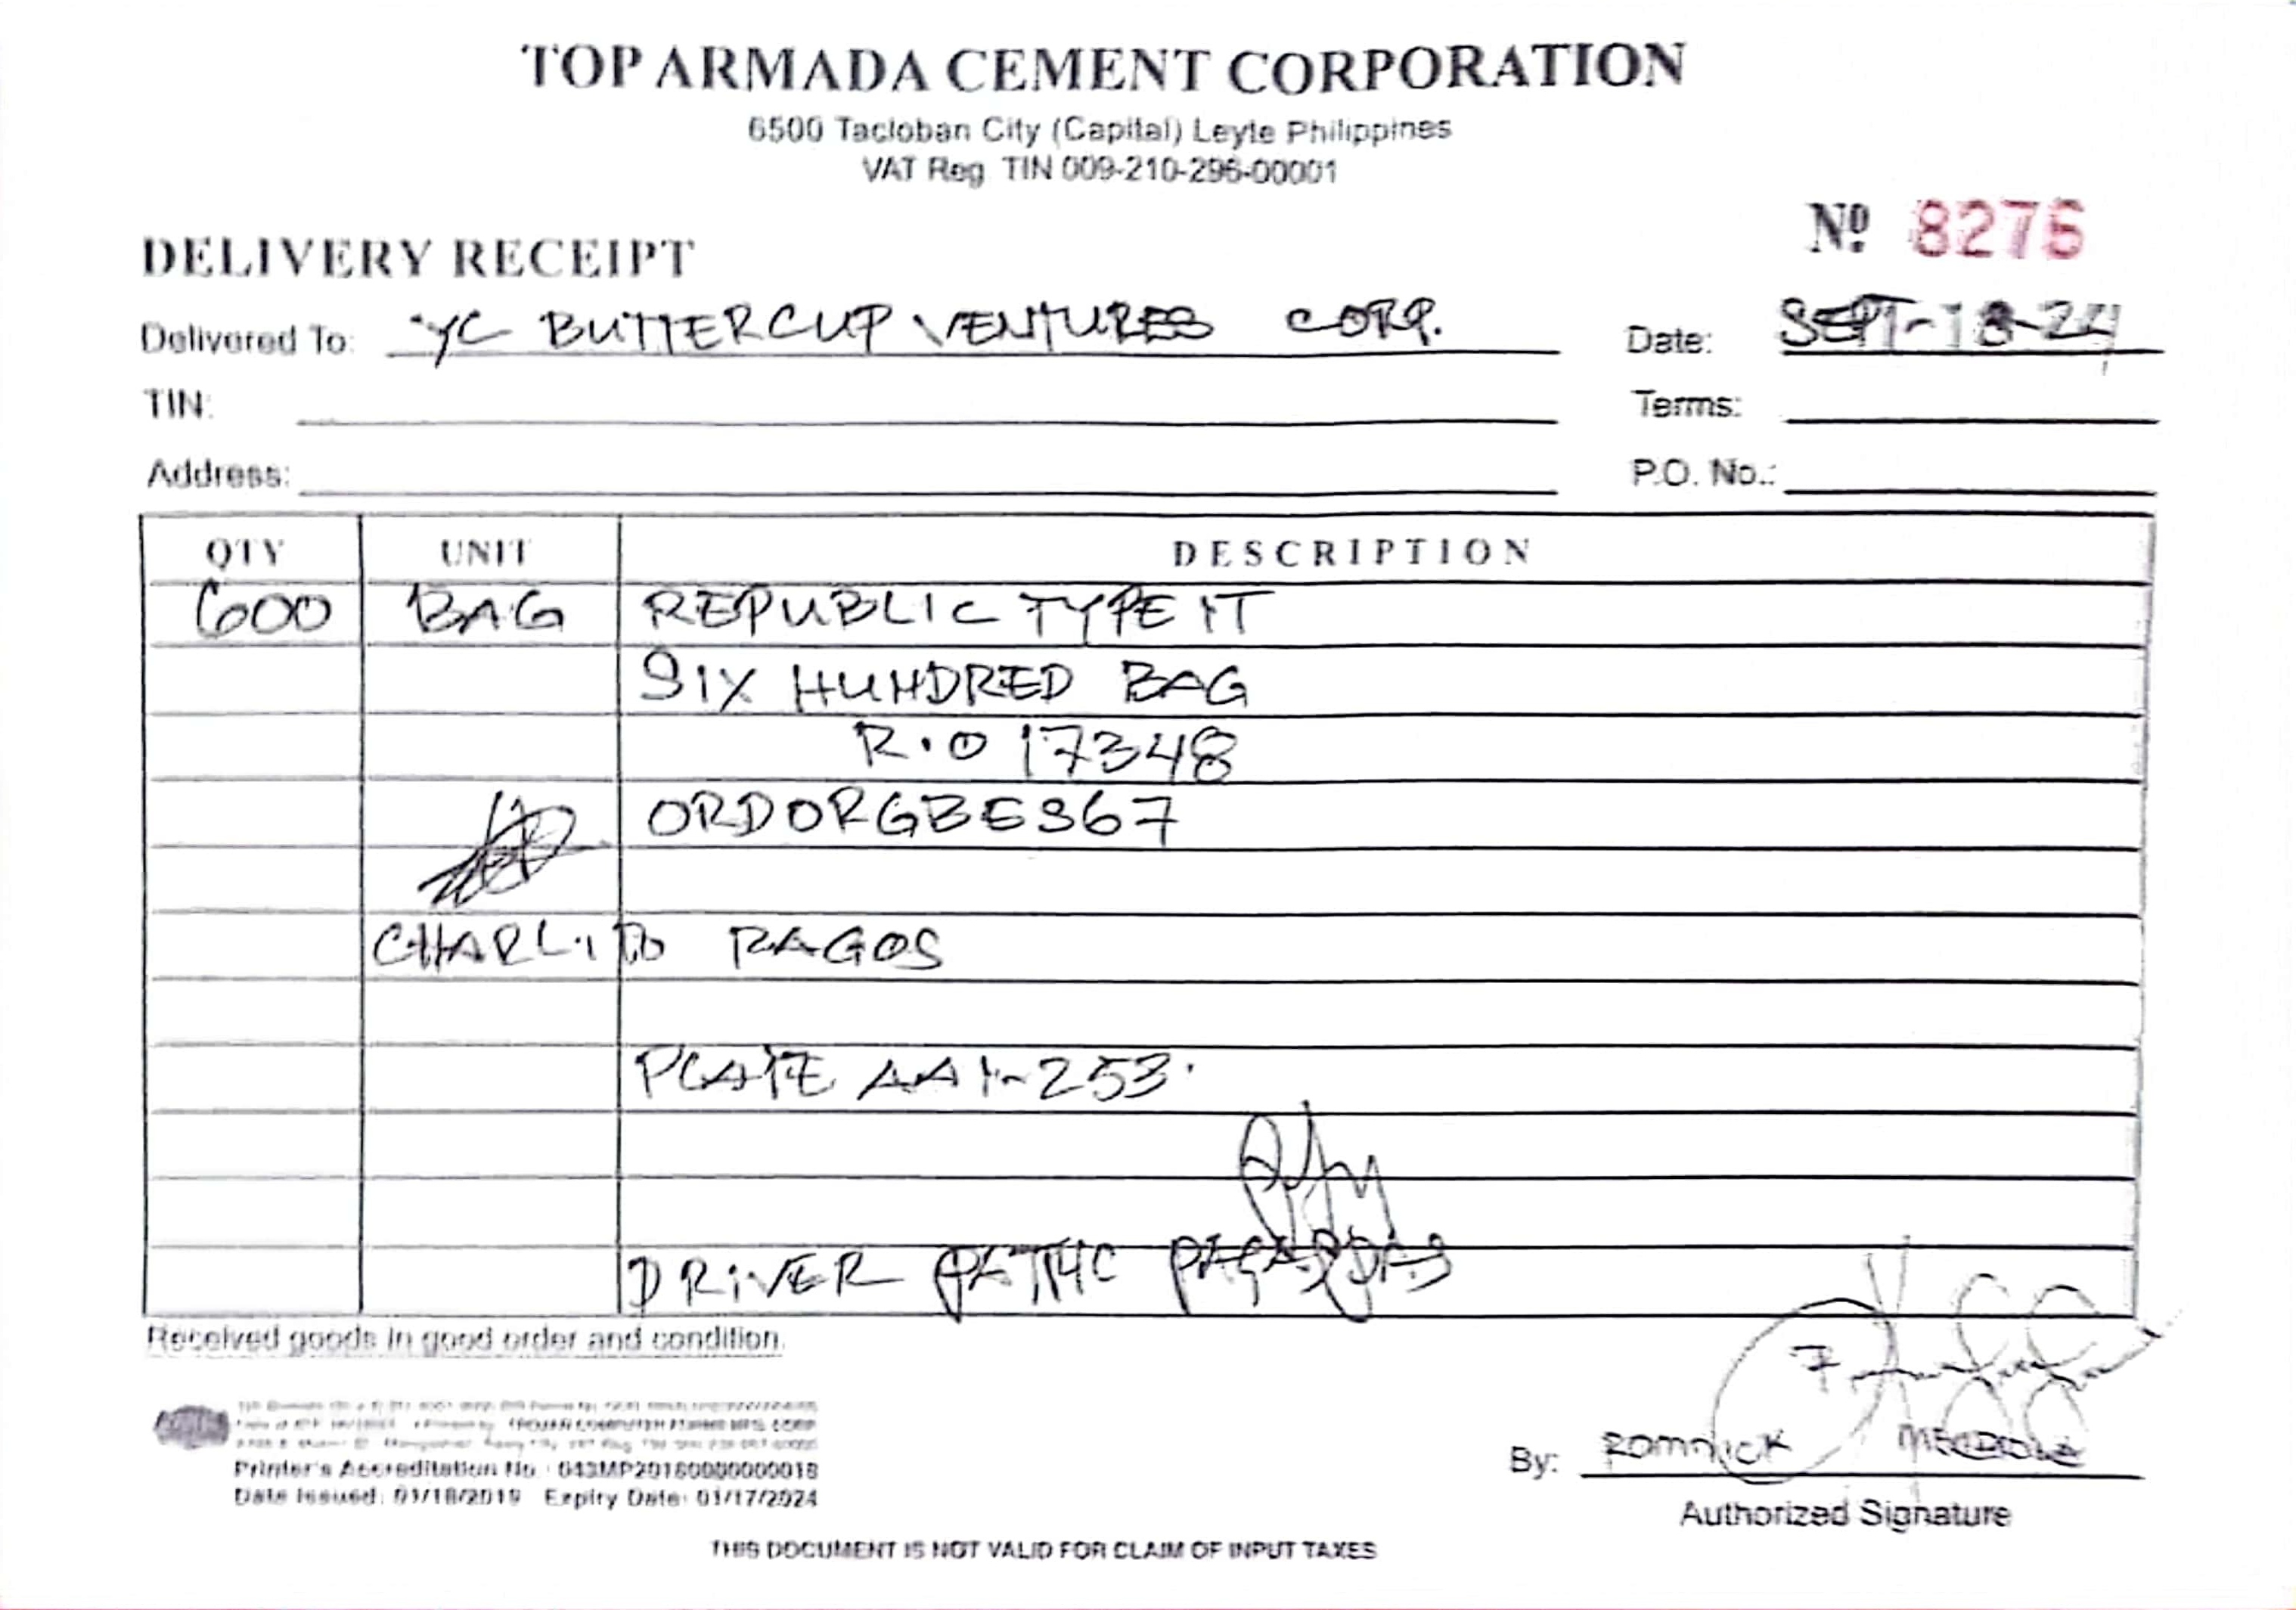 TOP ARMADA CEMENT CORPORATION
6500 Tacloban City (Capital) Leyte Philippines
VAT Reg TIN 009-210-296-00001
Nº 8276
DELIVERY RECEIPT
Delivered To: YC BUTTERCUP VENTURES CORP.
Date: SEPT-18-24
TIN:
Terms:
Address:
P.O. No.:
QTY UNIT DESCRIPTION
600 BAG REPUBLIC TYPE 1T
SIX HUNDRED BAG
R.O 17348
ORDORGBE367
CHARLITO RAGOS
PLATE AAY-253
DRIVER
Received goods in good order and condition.
Printer's Accreditation No : 043MP20180000000018
Date Issued: 01/18/2019 Expiry Date: 01/17/2024
By: ROMNICK
Authorized Signature
THIS DOCUMENT IS NOT VALID FOR CLAIM OF INPUT TAXES